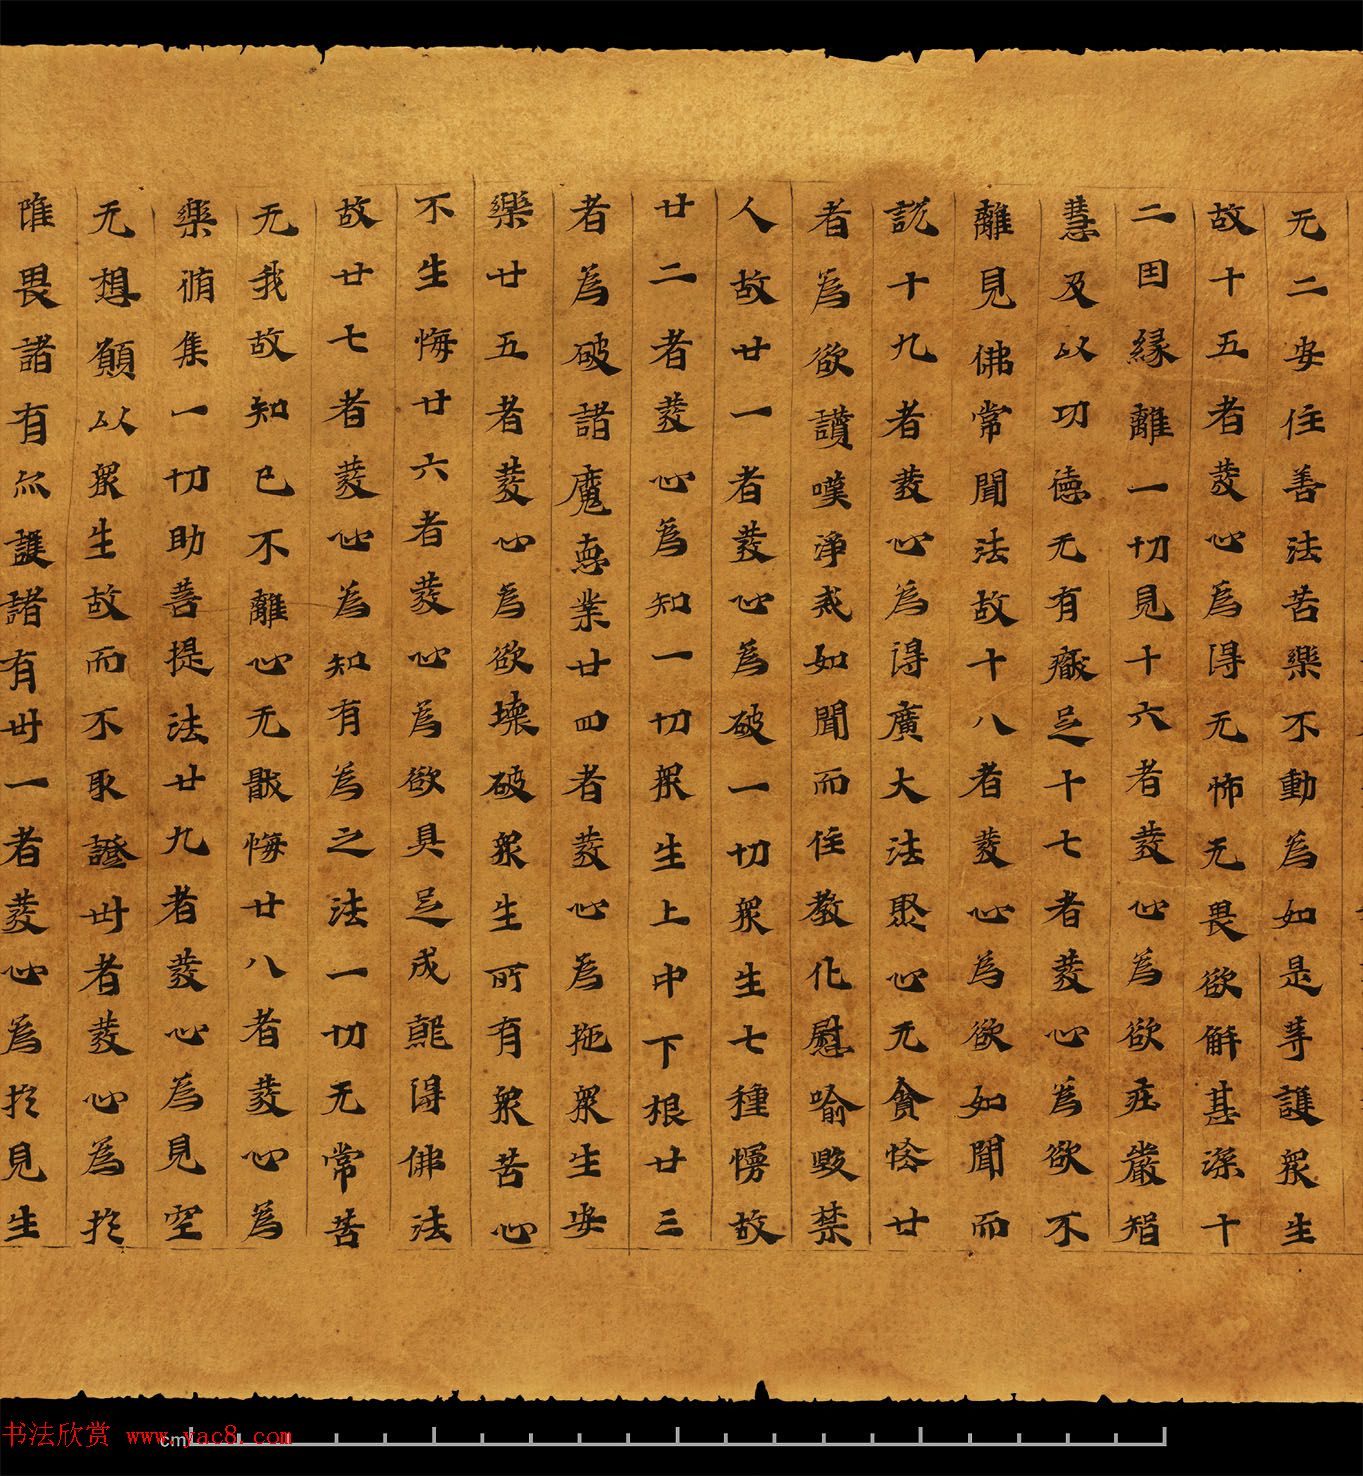 无二安住善法苦樂不動為如是等護眾生
故十五者菱心為得无怖无畏欲解甚深十
二因緣離一切見十六者菱心為欲莊嚴智
慧及以功德无有癡足十七者菱心為欲不
離見佛常聞法故十八者菱心為欲如聞而
說十九者菱心為得廣大法聚心无貪悋廿
者為欲讚嘆淨戒如聞而住教化慰喻毀禁
人故廿一者菱心為破一切眾生七種慢故
廿二者菱心為知一切眾生上中下根廿三
者為破諸魔惡業廿四者菱心為拖眾生安
樂廿五者菱心為欲壞破眾生所有眾苦心
不生悔廿六者菱心為欲具足成就得佛法
故廿七者菱心為知有為之法一切无常苦
无我故知已不離心无厭悔廿八者菱心為
樂脩集一切助菩提法廿九者菱心為見空
无想願以眾生故而不取證卅者菱心為於
畏諸有而護諸有卅一者菱心為於見生
書法欣赏 www.yac8.com
cm